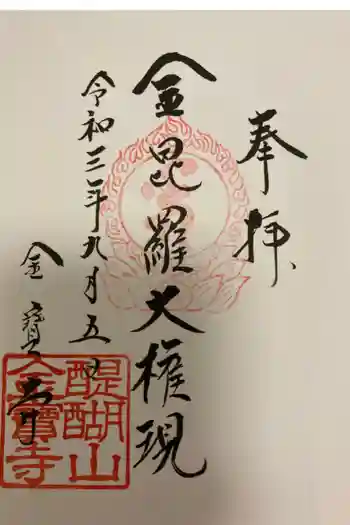 奉拝
金毘羅大権現
令和三年九月五日
金寳寺
醍醐山
金寳寺